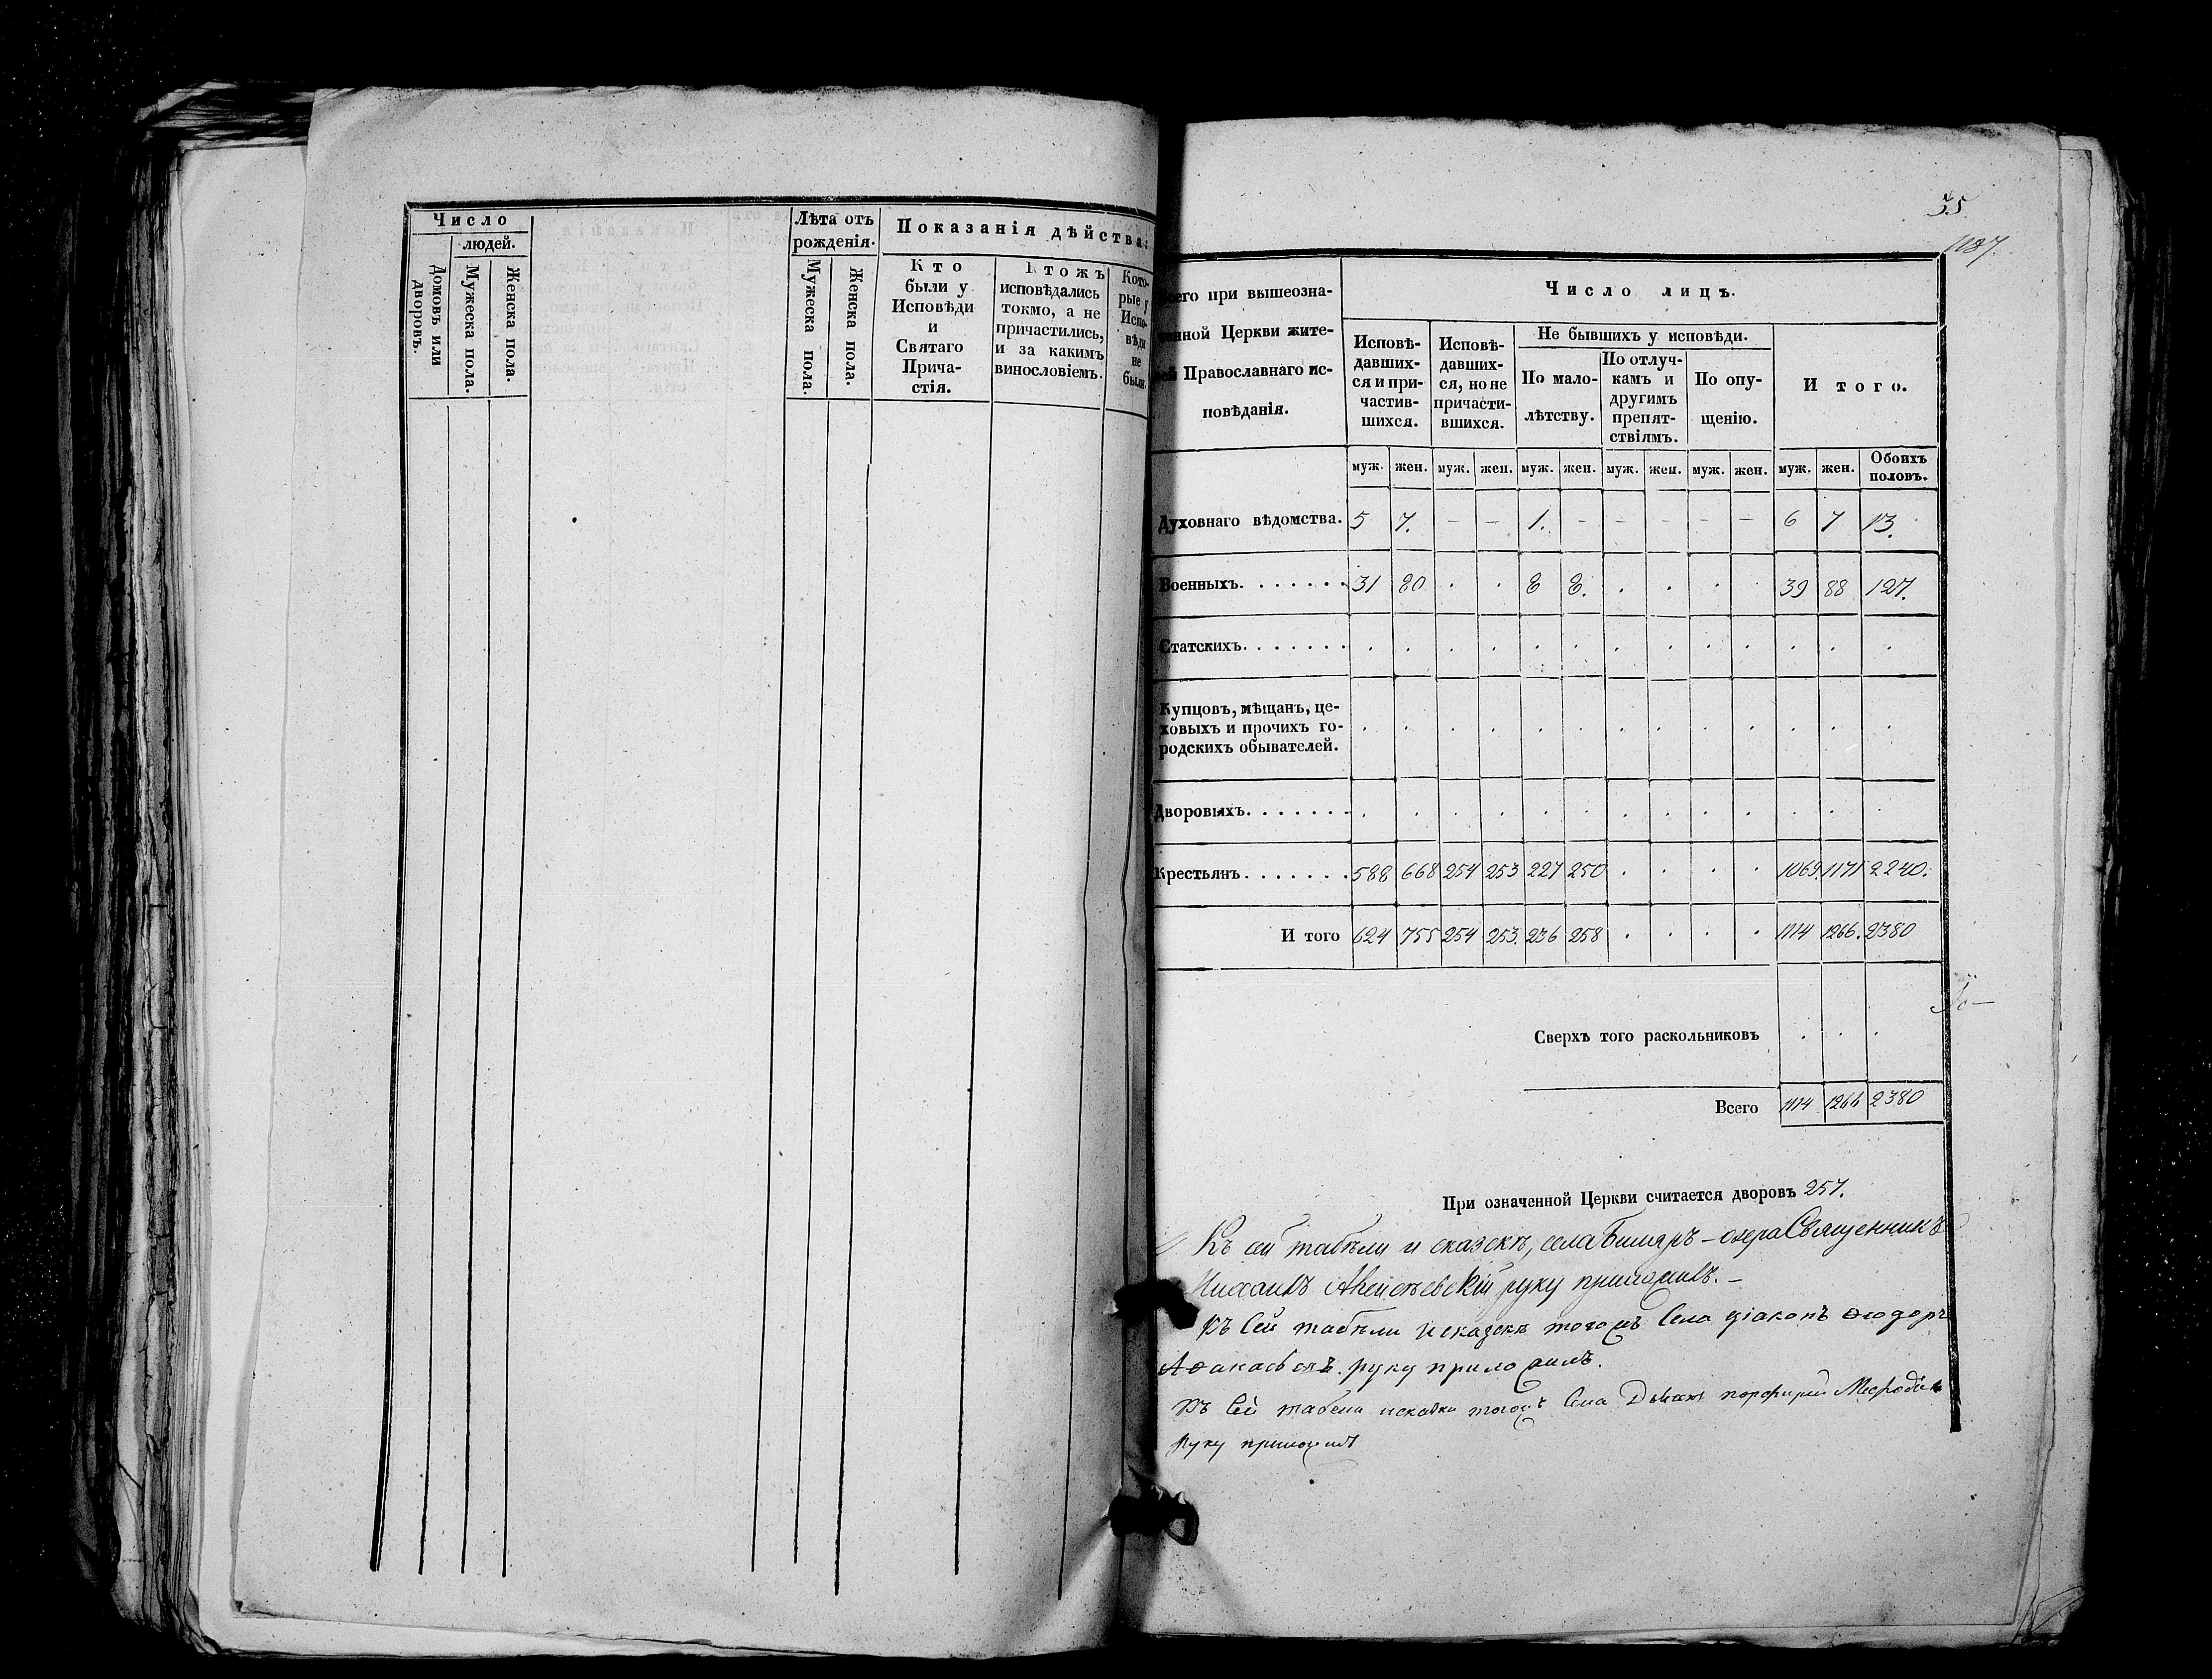 Число
людей.
Домовъ или
дворовъ.
Мужеска пола.
Женска пола.
Лѣта отъ
рожденія.
Мужеска пола.
Женска пола.
Показанія дѣйства:
Кто
были у
Исповѣди
и
Святаго
Прича-
стія.
Ктожъ
исповѣдались
токмо, а не
причастились,
и за какимъ
винословіемъ.
Кото-
рые у
Испо-
вѣди
не
были.
35
1187.
его при вышеозна-
енной Церкви жите-
ей Православнаго ис-
повѣданія.
Число лицъ.
Исповѣ-
давших-
ся и при-
частив-
шихся.
Исповѣ-
давших-
ся, но не
причасти-
вшихся.
Не бывшихъ у исповѣди.
По мало-
лѣтству.
По отлуч-
камъ и
другимъ
препят-
ствіямъ.
По опу-
щенію.
И того.
муж. жен. муж. жен. муж. жен. муж. жен. муж. жен. муж. жен. Обоихъ
половъ.
Духовнаго вѣдомства. 5 7. – – 1. – – – – – 6 7 13.
Военныхъ. . . . . . . 31 80 . . 8 8. . . . . 39 88 127.
Статскихъ. . . . . . . . . . . . . . . . . . . .
Купцовъ, мѣщанъ, це-
ховыхъ и прочихъ го-
родскихъ обывателей. . . . . . . . . . . . . .
Дворовыхъ. . . . . . . . . . . . . . . . . . . .
Крестьянъ. . . . . . . 588 668 254 253 227 250 . . . . 1069. 1171 2240.
И того 624 755 254 253. 236 258 . . . . 1114 1266. 2380
Сверхъ того раскольниковъ . . .
Всего 1114 1266 2380
При означенной Церкви считается дворовъ 257.
Къ сей табѣли и сказскѣ, села Биляръ-озера Священникъ
Михаилъ руку приложилъ. –
Къ Сей табѣли и сказскѣ тогожъ Села діаконъ Ѳеодоръ
руку приложилъ.
Къ Сей табели и тогожъ Села Дьячокъ порфирий
Руку приложилъ